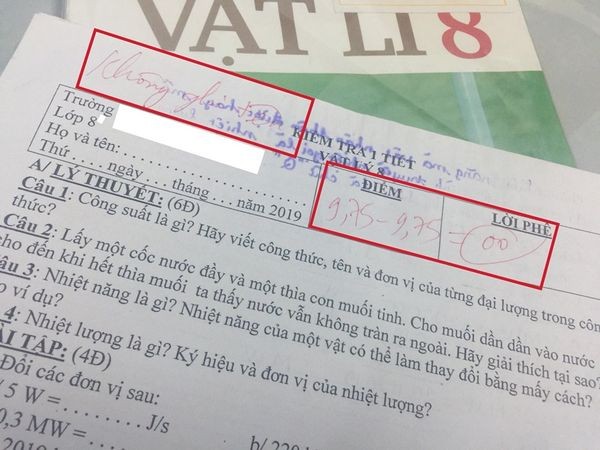 VẬT LÍ 8
Không ghi
KIỂM TRA 1 TIẾT
VẬT LÝ 8
Trường
Lớp 8
Họ và tên:
Thứ ..... ngày .... tháng ... năm 2019
ĐIỂM
LỜI PHÊ
9,75 - 9,75 = 00
A/ LÝ THUYẾT: (6Đ)
Câu 1: Công suất là gì? Hãy viết công thức, tên và đơn vị của từng đại lượng trong côn
thức?
Câu 2: Lấy một cốc nước đầy và một thìa con muối tinh. Cho muối dần dần vào nước
cho đến khi hết thìa muối ta thấy nước vẫn không tràn ra ngoài. Hãy giải thích tại sao?
âu 3: Nhiệt năng là gì? Nhiệt năng của một vật có thể làm thay đổi bằng mấy cách?
o ví dụ?
4: Nhiệt lượng là gì? Ký hiệu và đơn vị của nhiệt lượng?
ÀI TẬP: (4Đ)
Đổi các đơn vị sau:
5 W = ......... J/s
0,3 MW = .........
2019
b/ 220